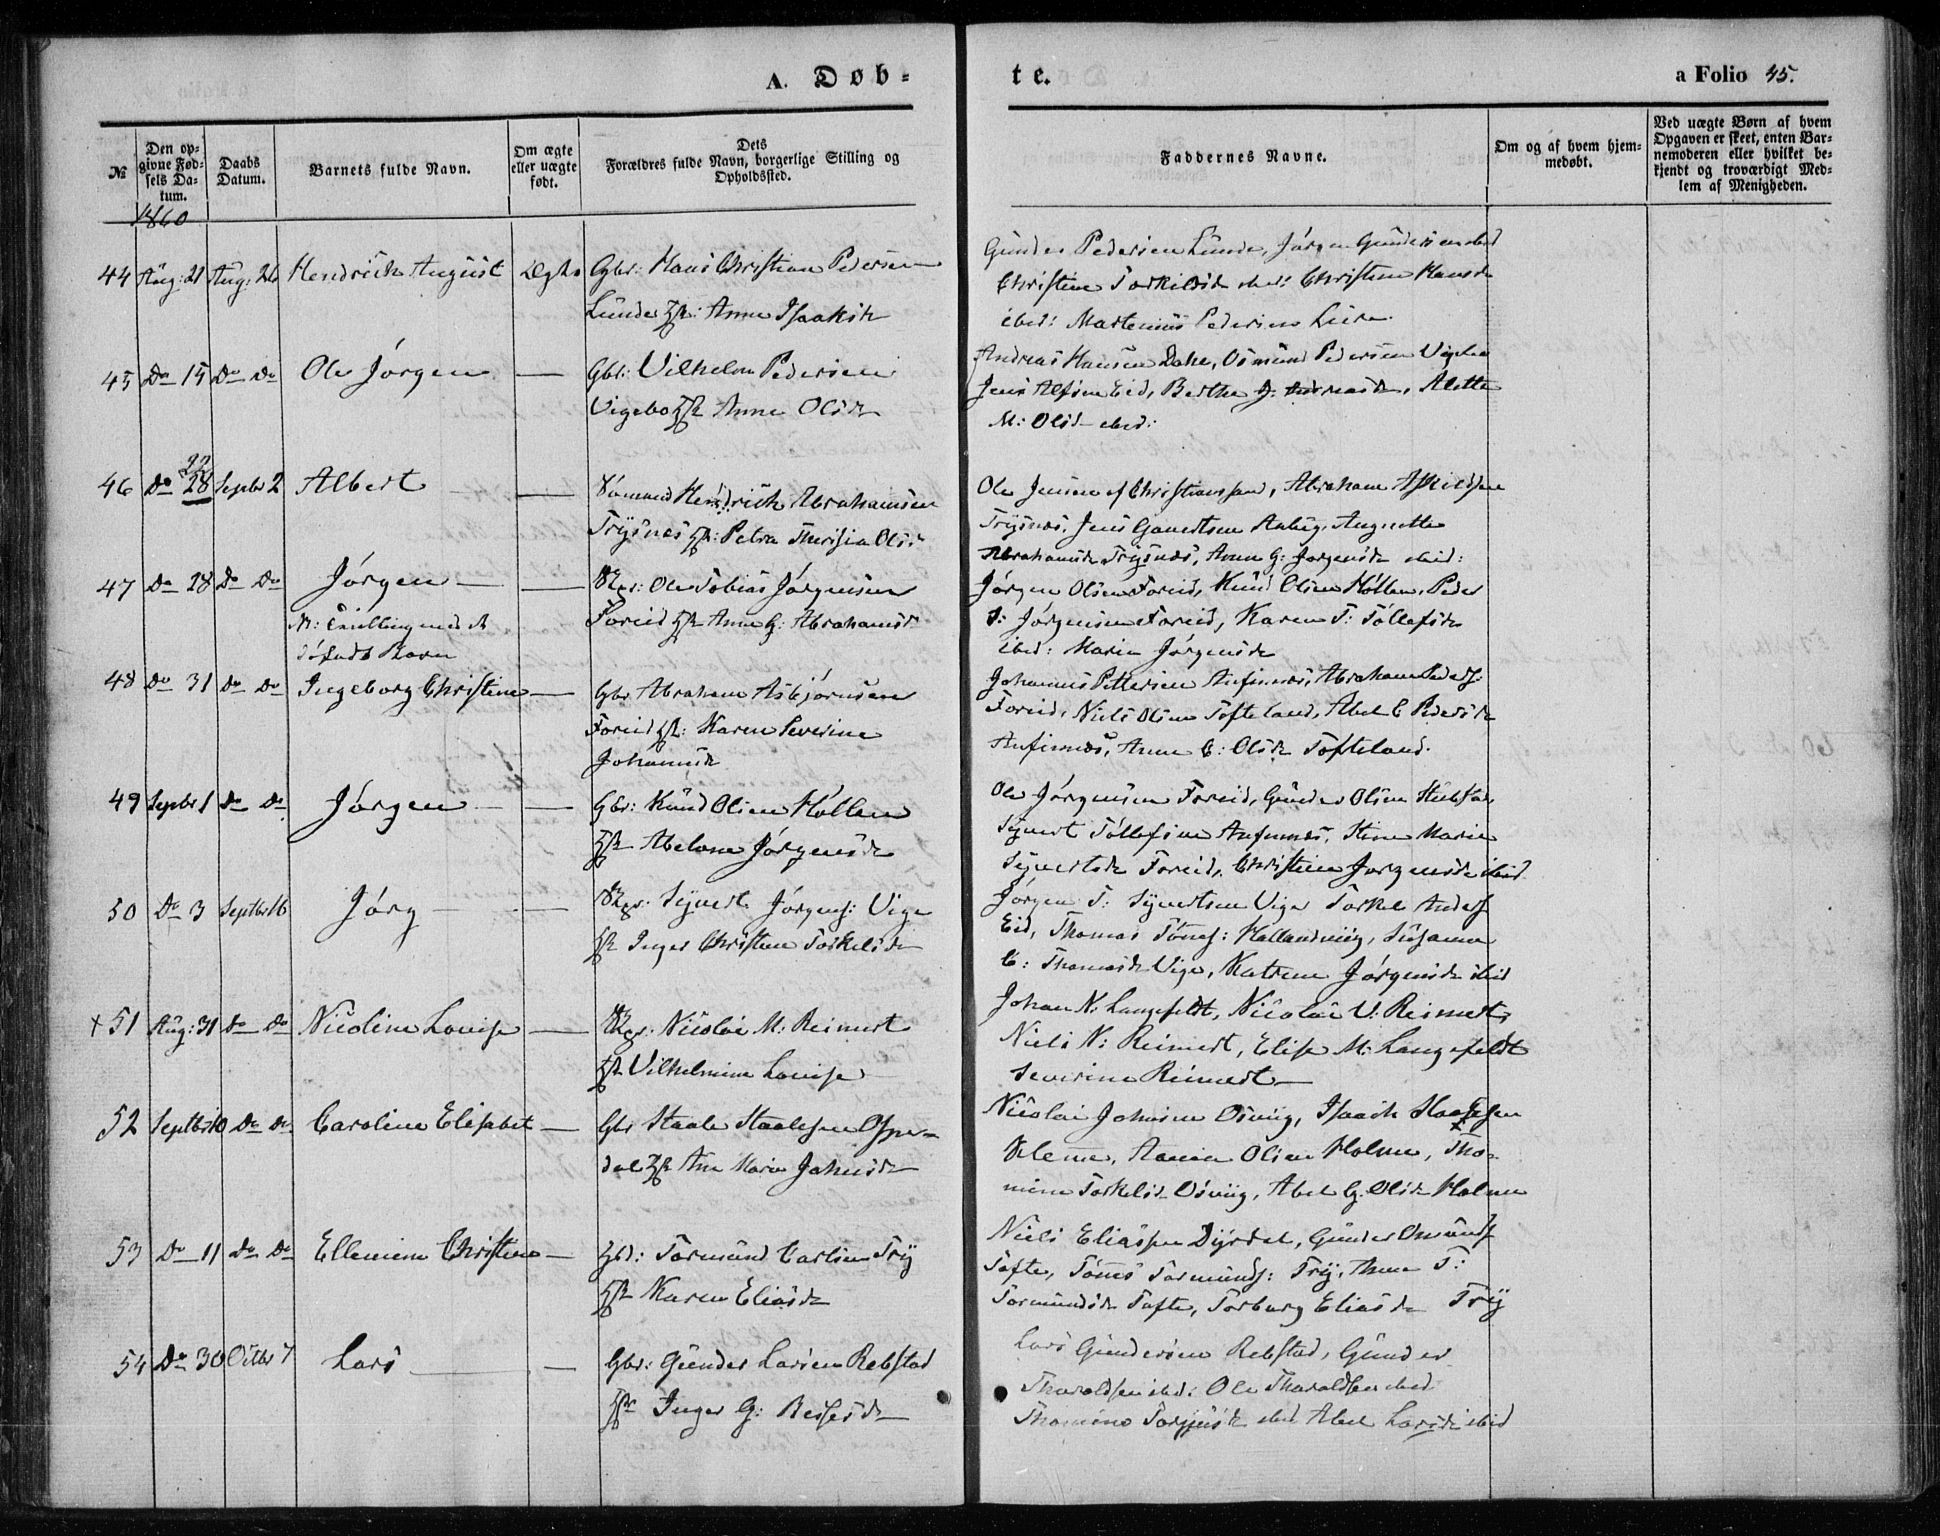 A. Døb-
te.
a Folio 45.
№
Den op-
givne Fød-
sels Da-
tum.
Daabs
Datum.
Barnets fulde Navn.
Om ægte
eller uægte
født.
Dets
Forældres fulde Navn, borgerlige Stilling og
Opholdssted.
Faddernes Navne.
Om og af hvem hjem-
medøbt.
Ved uægte Børn af hvem
Opgaven er skeet, enten Bar-
nemoderen eller hvilket be-
kjendt og troværdigt Med-
lem af Menigheden.
1860
44 Aug: 21 Aug: 26 Hendrich August Ægte Gbr: Hans Christian Pedersen
Lunde Anne Isaaksd
Gunder Pedersen Lunde, Jørgen Gundersen ibid
Christine Torkildsd ibid: Christine Hansd
ibid: Martenius Pedersen
45 Do 15 Do Do Ole Jørgen — Gbr: Vilhelm Pedersen
Vigebo Anne Olsd
Andreas Hansen Dahe, Osmund Pedersen
Jens Alfsen Eid, Berthe Alette
M: Olsd ibid:
46 Do 22 28 Septbr 2 Albert — Hendrich Abrahamsen
Trysnes Petra Olsd
Ole Jensen af Christianssand, Abraham
Trysnes, Jens Augnette
Abrahamsd Trysnes, Anne G: Jørgensd ibid:
47 Do 28 Do Do Jørgen — — Ole Tobias Jørgensen
Foreid Anne G: Abrahamsd
N:
Barn
Jørgen Olsen Foreid, Knud Olsen Høllen, Peder
Jørgensen Foreid, Karen T: Tøllefsd
ibid: Marie Jørgensd
48 Do 31 Do Do Ingeborg Christine — Gbr Abraham Asbjørnsen
Foreid Karen Severine
Johannesd
Johannes Pettersen Anfinnæs, Abraham
Foreid, Niels Olsen Tofteland, Abel C Pedersd
Anfinnæs, Anne C: Olsd Tofteland.
49 Septbr 1 Do Do Jørgen — — Gbr: Knud Olsen Høllen
Abelone Jørgensd
Ole Jørgensen Foreid, Gunder Olsen
Syvert Tøllefsen Anfinnæs, Stine Marie
Syvertsd Foreid, Christine Jørgensd ibid
50 Do 3 Septbr 16 Jørg — — Syvert Jørgens: Vige
Inger Christine Torkelsd
Jørgen T: Syvertsen Vige Torkel Anders
Eid, Thomas Tønes: Susanne
C: Thomasd Vige, Katrine Jørgensd ibid
+ 51 Aug: 31 Do Do Nicoline Louise — Nicolai M: Reimert
Vilhelmine Louise
Johan N: Langefeldt, Nicolai V: Reimert,
Niels N: Reimert, Elise M: Langefeldt
Severine Reimert —
52 Septbr 10 Do Do Caroline Elisabet — Gbr Staale Staalesen
dal Ane Marie Johnsd
Nicolai Johnsen Osviig, Isaach
Olsen Holme, Tho-
mine Torkelsd Osviig, Abel G. Olsd Holme
53 Do 11 Do Do Christine — Tormund Carlsen Try
Karen Eliasd
Niels Eliassen Dyrdal, Gunder Omunds
Tofte, Tønes Tormunds: Try, Anne T:
Tormundsd Tofte, Torborg Eliasd Try
54 Do 30 Octbr 7 Lars — — Gbr: Gunder Larsen Rebstad
Inger G:
Lars Gundersen Rebstad, Gunder
Tharaldsen ibid: Ole Tharaldsen ibid
Thomine ibid Abel Larsd ibid